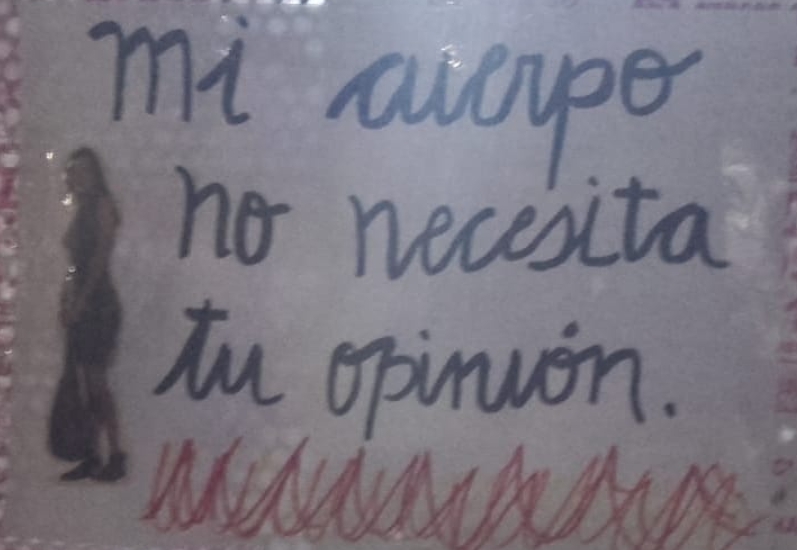 mi cuerpo
no necesita
tu opinión.